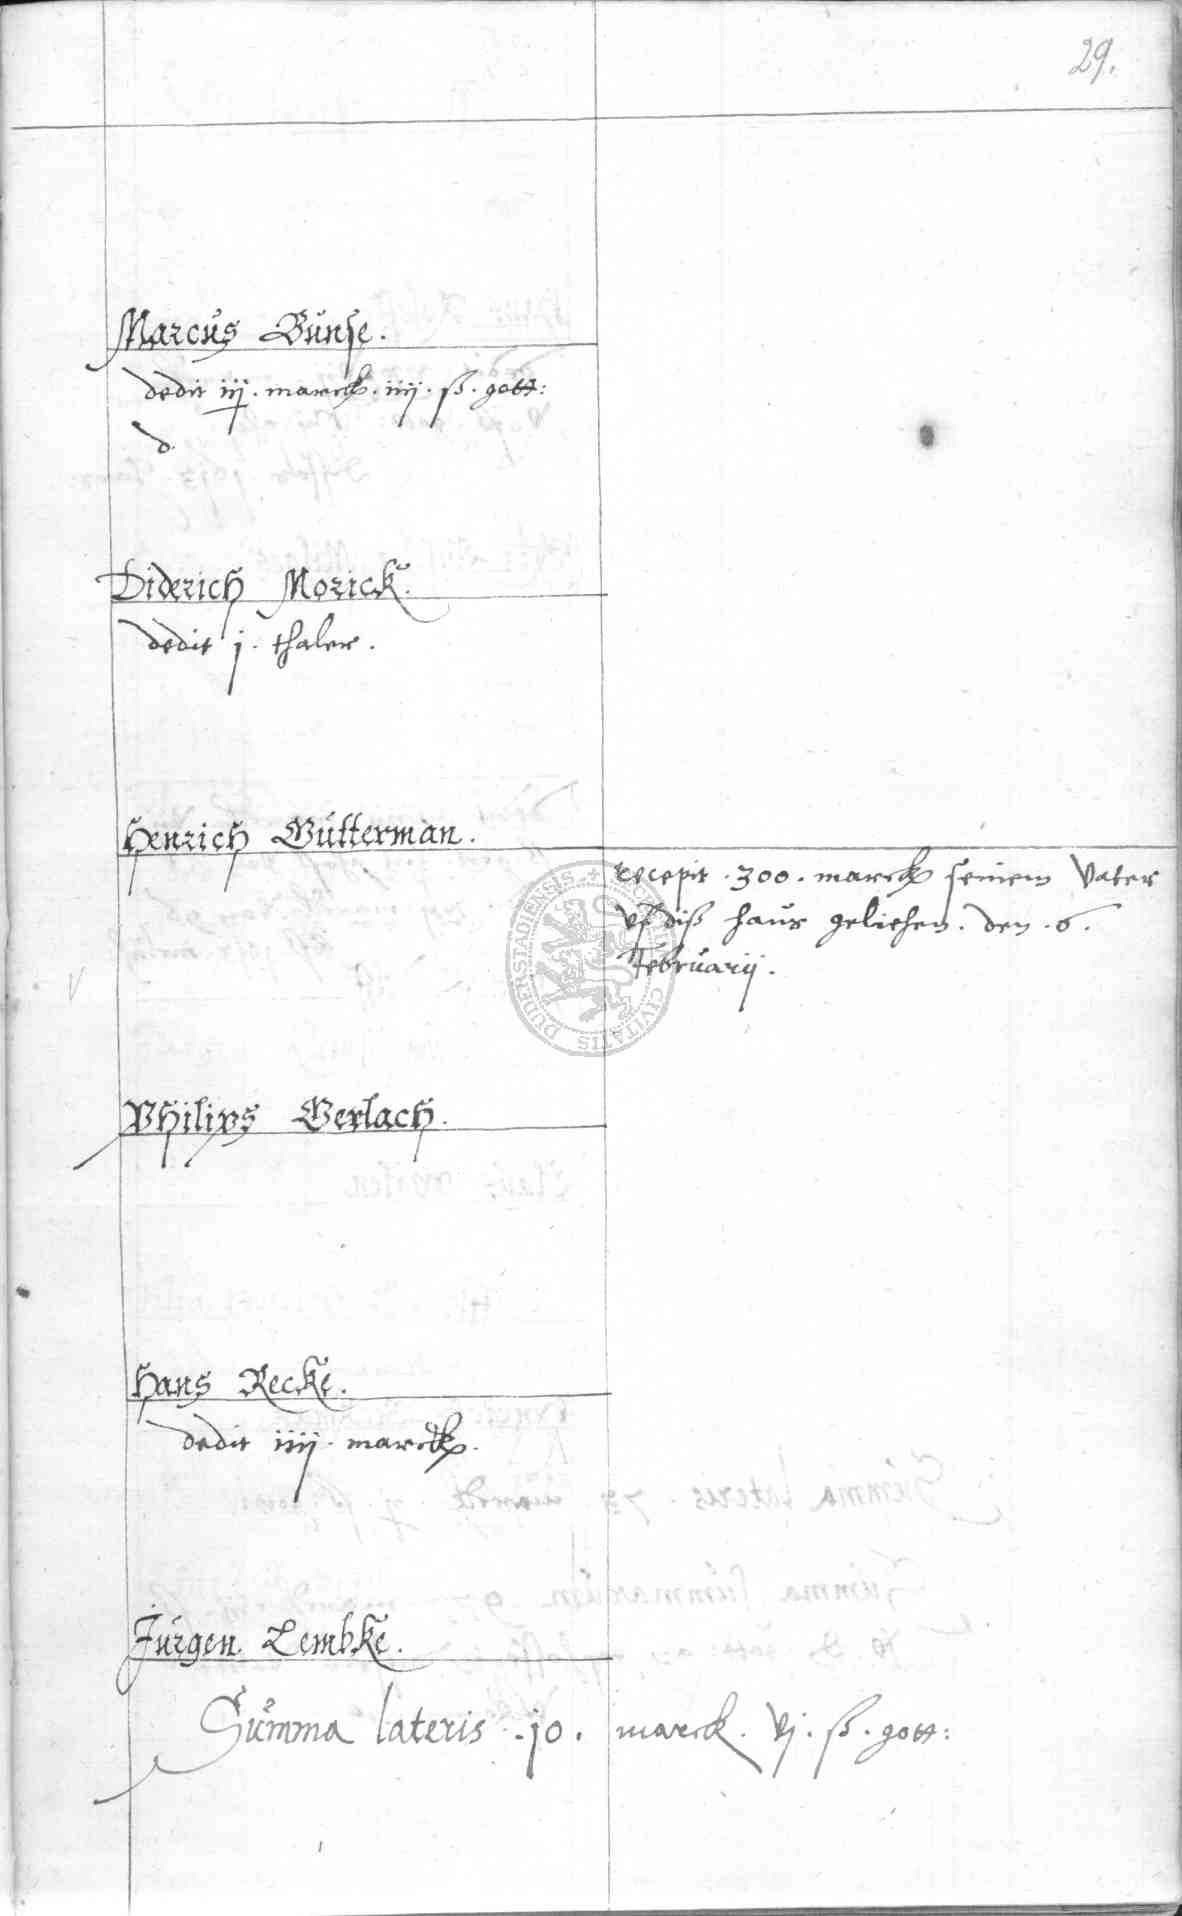 29.
Marcus Bunse.
dedit iij. marck. iiij. ß. gott:
d.
Diderich Morick.
dedit j. thaler.
Henrich Gutterman.
recepit .300. marck seinem Vater
vf diß haus geliehen. den .6.
Februarij.
Philips Gerlach.
Hans Recke.
dedit iiij. marck.
Jurgen Lembke.
Summa lateris .10. marck. vj. ß. gott:
DUDERSTADIENSIS CIVITATIS